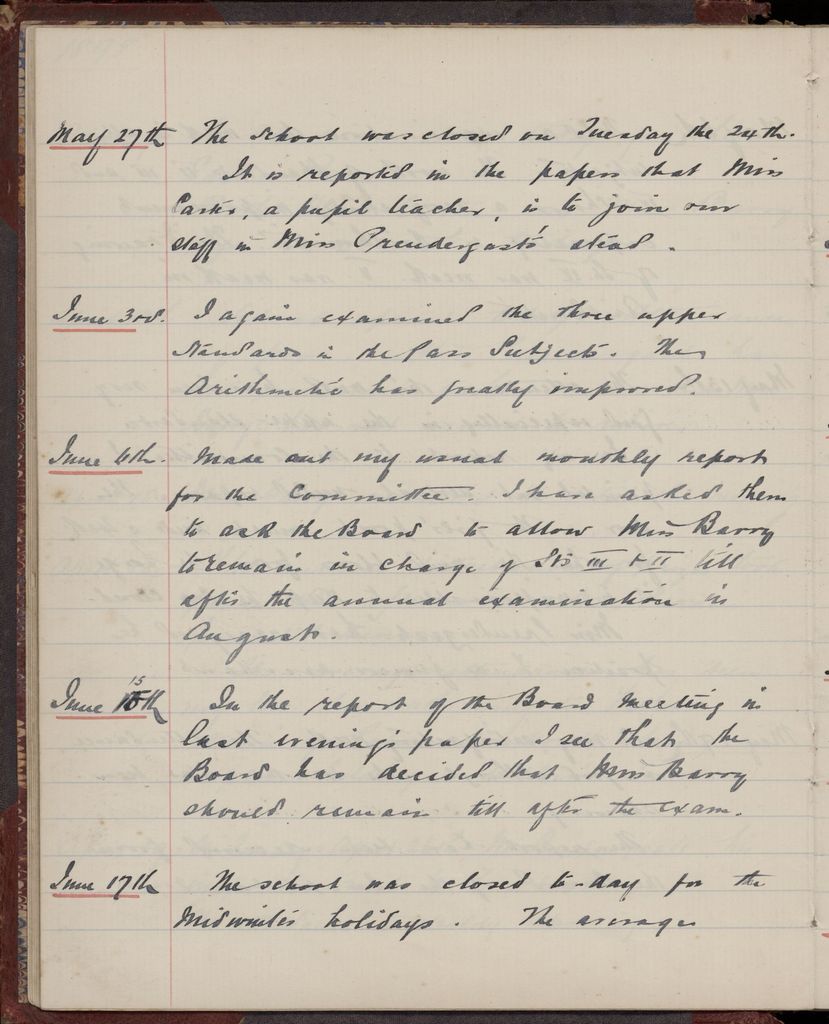 May 27th The school was closed on Tuesday the 24th.
It is reported in the papers that Miss
Carter, a pupil teacher, is to join our
staff in Miss Prendergast's stead.
June 3rd. I again examined the three upper
Standards in the Pass Subjects. The
Arithmetic has greatly improved.
June 6th. Made out my usual monthly report
for the Committee. I have asked them
to ask the Board to allow Miss Barry
to remain in charge of Sts III & II till
after the annual examination in
August.
June 15th In the report of the Board meeting in
last evening's paper I see that the
Board has decided that Miss Barry
should remain till after the exam.
June 17th The school was closed to-day for the
Midwinter holidays. The average